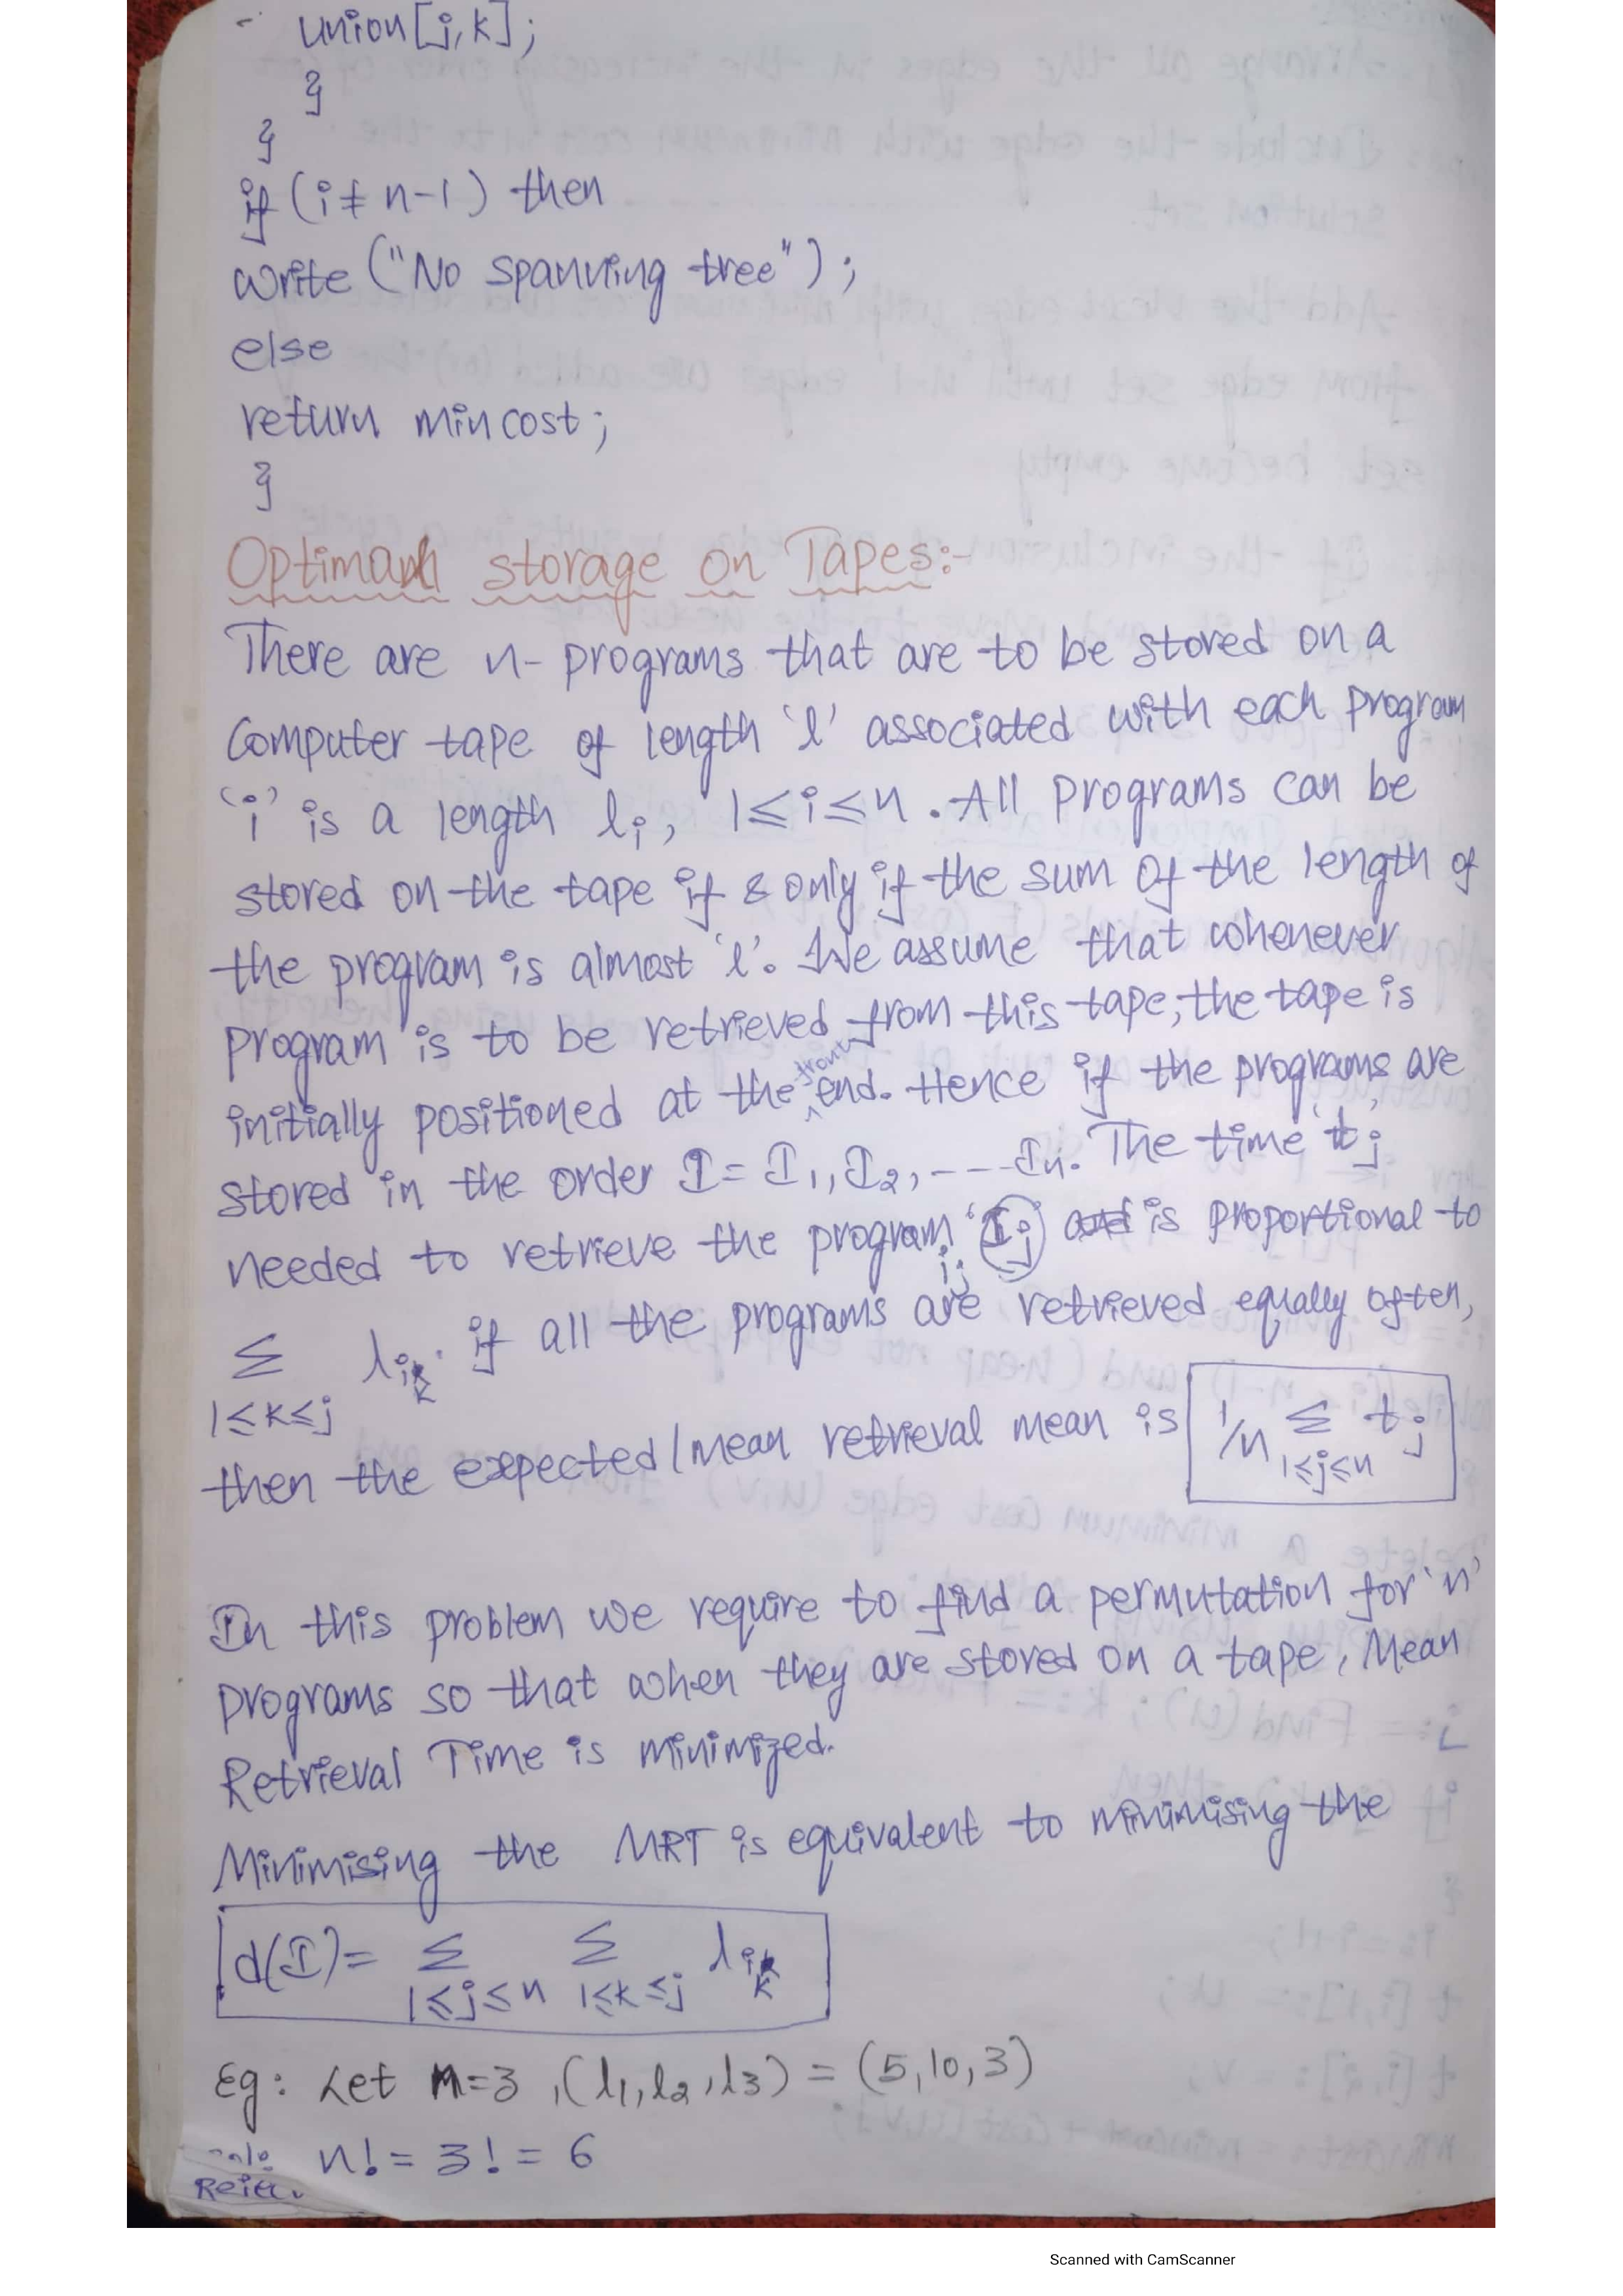 Union[j,k];
}
}
if (i ≠ n-1) then
write ("No spanning tree");
else
return mincost;
}
Optimal storage on Tapes:-
There are n- programs that are to be stored on a
Computer tape of length 'l' associated with each program
'i' is a length li, 1≤i≤n. All programs can be
stored on the tape if & only if the sum of the length of
the program is almost 'l'. We assume that whenever
program is to be retrieved from this tape, the tape is
initially positioned at the front end. Hence if the programs are
stored in the order I = I1, I2, ---In. The time 'tj'
needed to retrieve the program ij is proportional to
Σ lik. if all the programs are retrieved equally often,
1≤k≤j
then the expected/mean retrieval mean is 1/n Σ tj
1≤j≤n
In this problem we require to find a permutation for 'n'
programs so that when they are stored on a tape, Mean
Retrieval Time is minimized.
Minimising the MRT is equivalent to minimising the
d(I) = Σ Σ lik
1≤j≤n 1≤k≤j
Eg: Let n=3, (l1, l2, l3) = (5, 10, 3)
n! = 3! = 6
Scanned with CamScanner